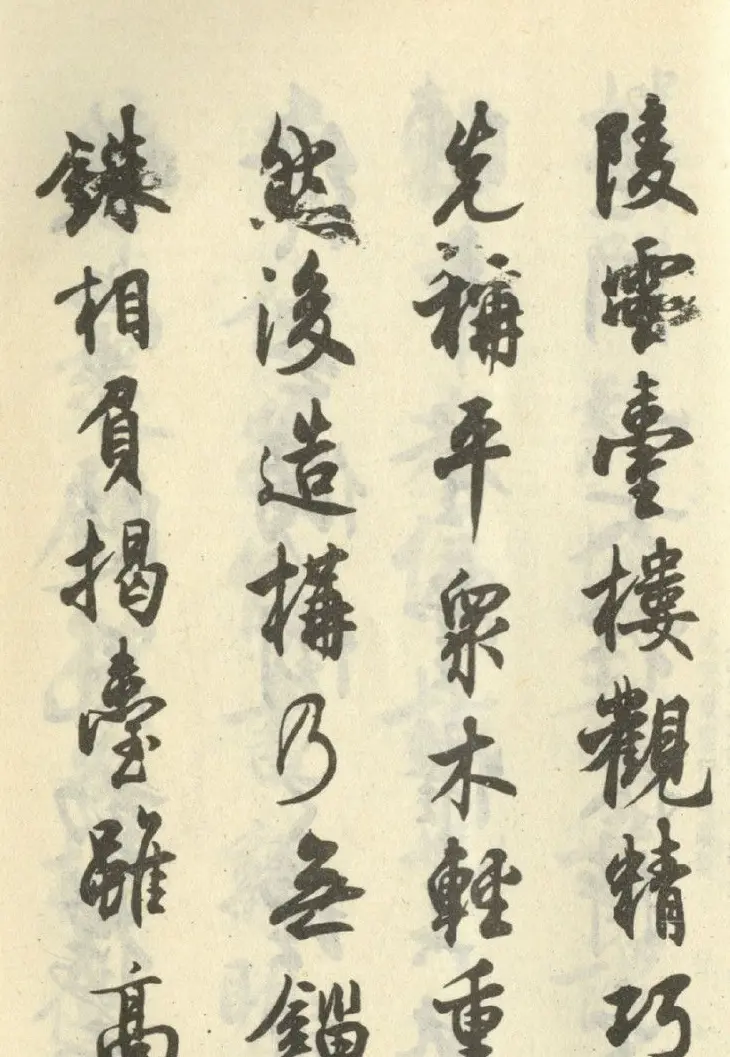 陵雲臺樓觀精巧
先稱平眾木輕重
然後造構乃無錙
銖相負揭臺雖高